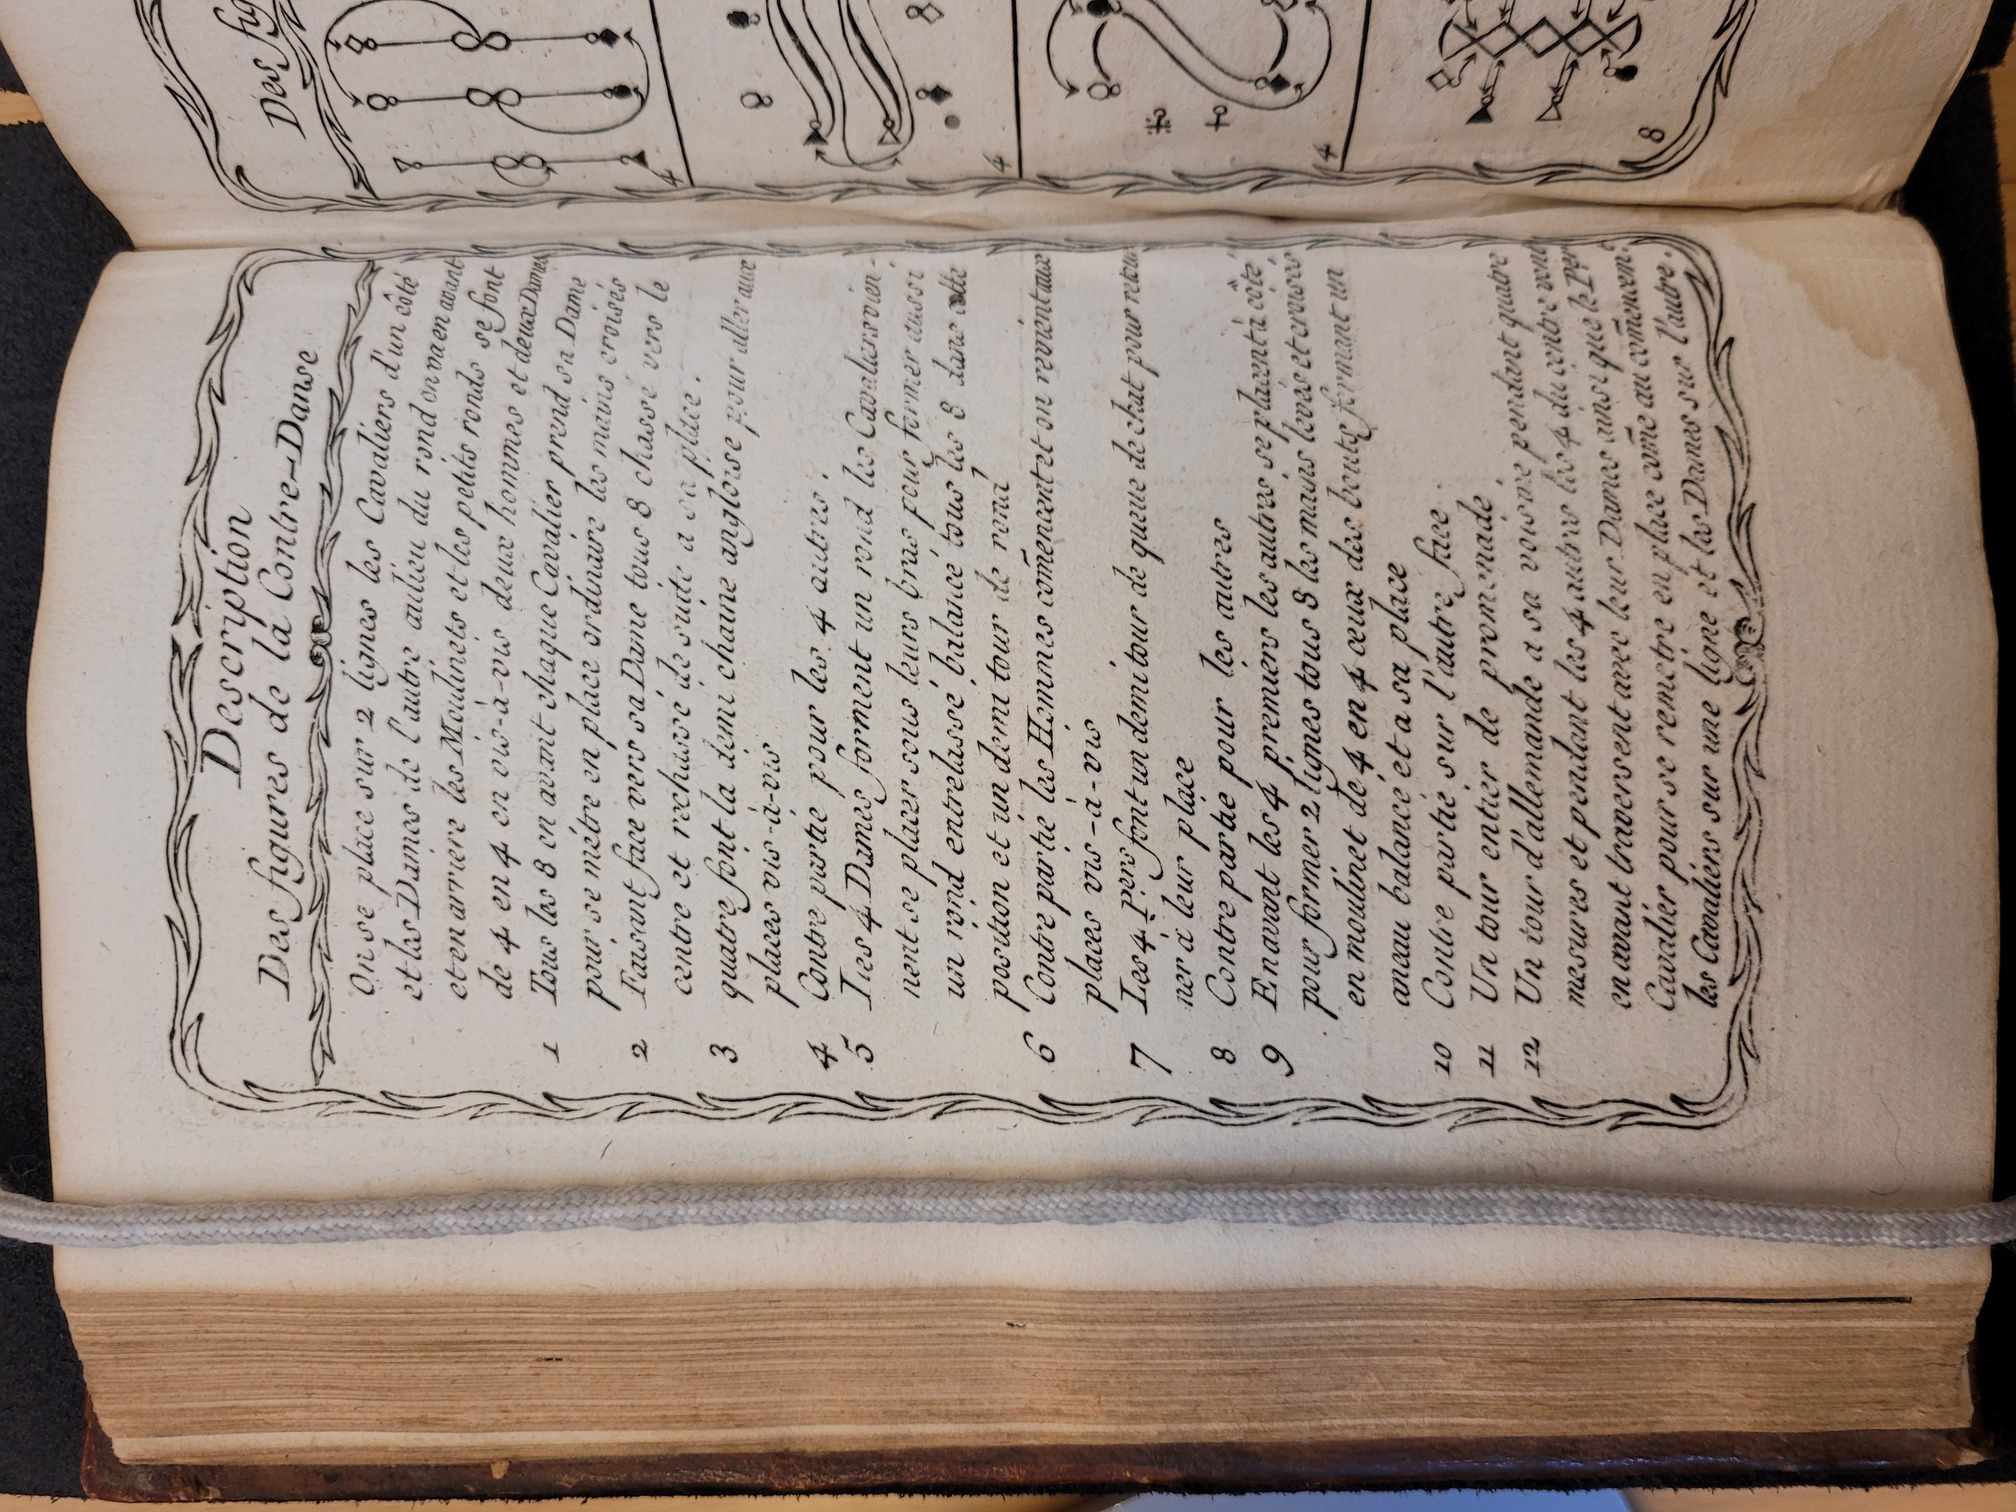 Description
Des figures de la Contre-Danse
On se place sur 2 lignes les Cavaliers d'un côté
et les Dames de l'autre aulieu du rond on va en avant
et en arriere les Moulinets et les petits ronds se font
de 4 en 4 en vis-à-vis deux hommes et deux Dames
1 Tous les 8 en avant chaque Cavalier prend sa Dame
pour se métre en place ordinaire les mains croisés
2 Faisant face vers sa Dame tous 8 chassé vers le
centre et rechassé de suite a sa place.
3 quatre font la demi chaine angloise pour aller aux
places vis-à-vis
4 Contre partie pour les 4 autres.
5 Les 4 Dames forment un rond les Cavaliers vien-
nent se placer sous leurs bras pour former aussi
un rond entrelassé balancé tous les 8 dans cette
position et un demi tour de rond
6 Contre partie les Hommes com̃encent et on revient aux
places vis-à-vis
7 Les 4 pers font un demi tour de queue de chat pour retour
ner à leur place
8 Contre partie pour les autres
9 En avant les 4 premiers les autres se placent à côté
pour former 2 lignes tous 8 les mains levés et croisés
en moulinet de 4 en 4 œux des bouts formant un
aneau balancé et a sa place
10 Contre partie sur l'autre face.
11 Un tour entier de promenade.
12 Un tour d'allemande a sa voisine pendant quatre
mesures et pendant les 4 autres les 4 du centre vont
en avant traversent avec leur Dames ainsi que le Per
Cavalier pour se remetre en place com̃e au com̃encem.
les Cavaliers sur une ligne et les Dames sur l'autre.
Des fig
4
4
4
8